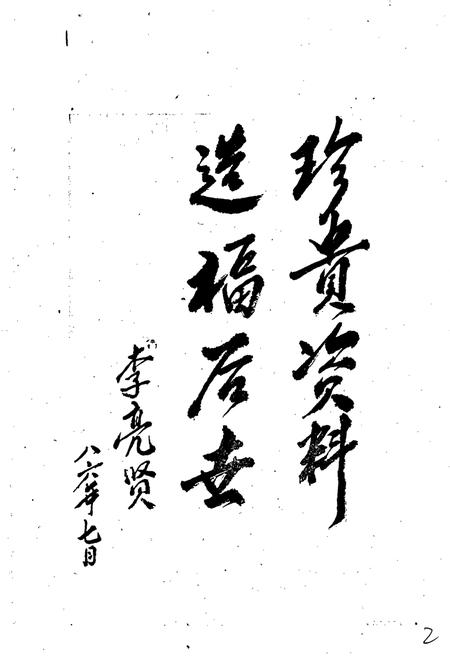 珍贵资料
造福后世
李亮贤
八六年七月
2